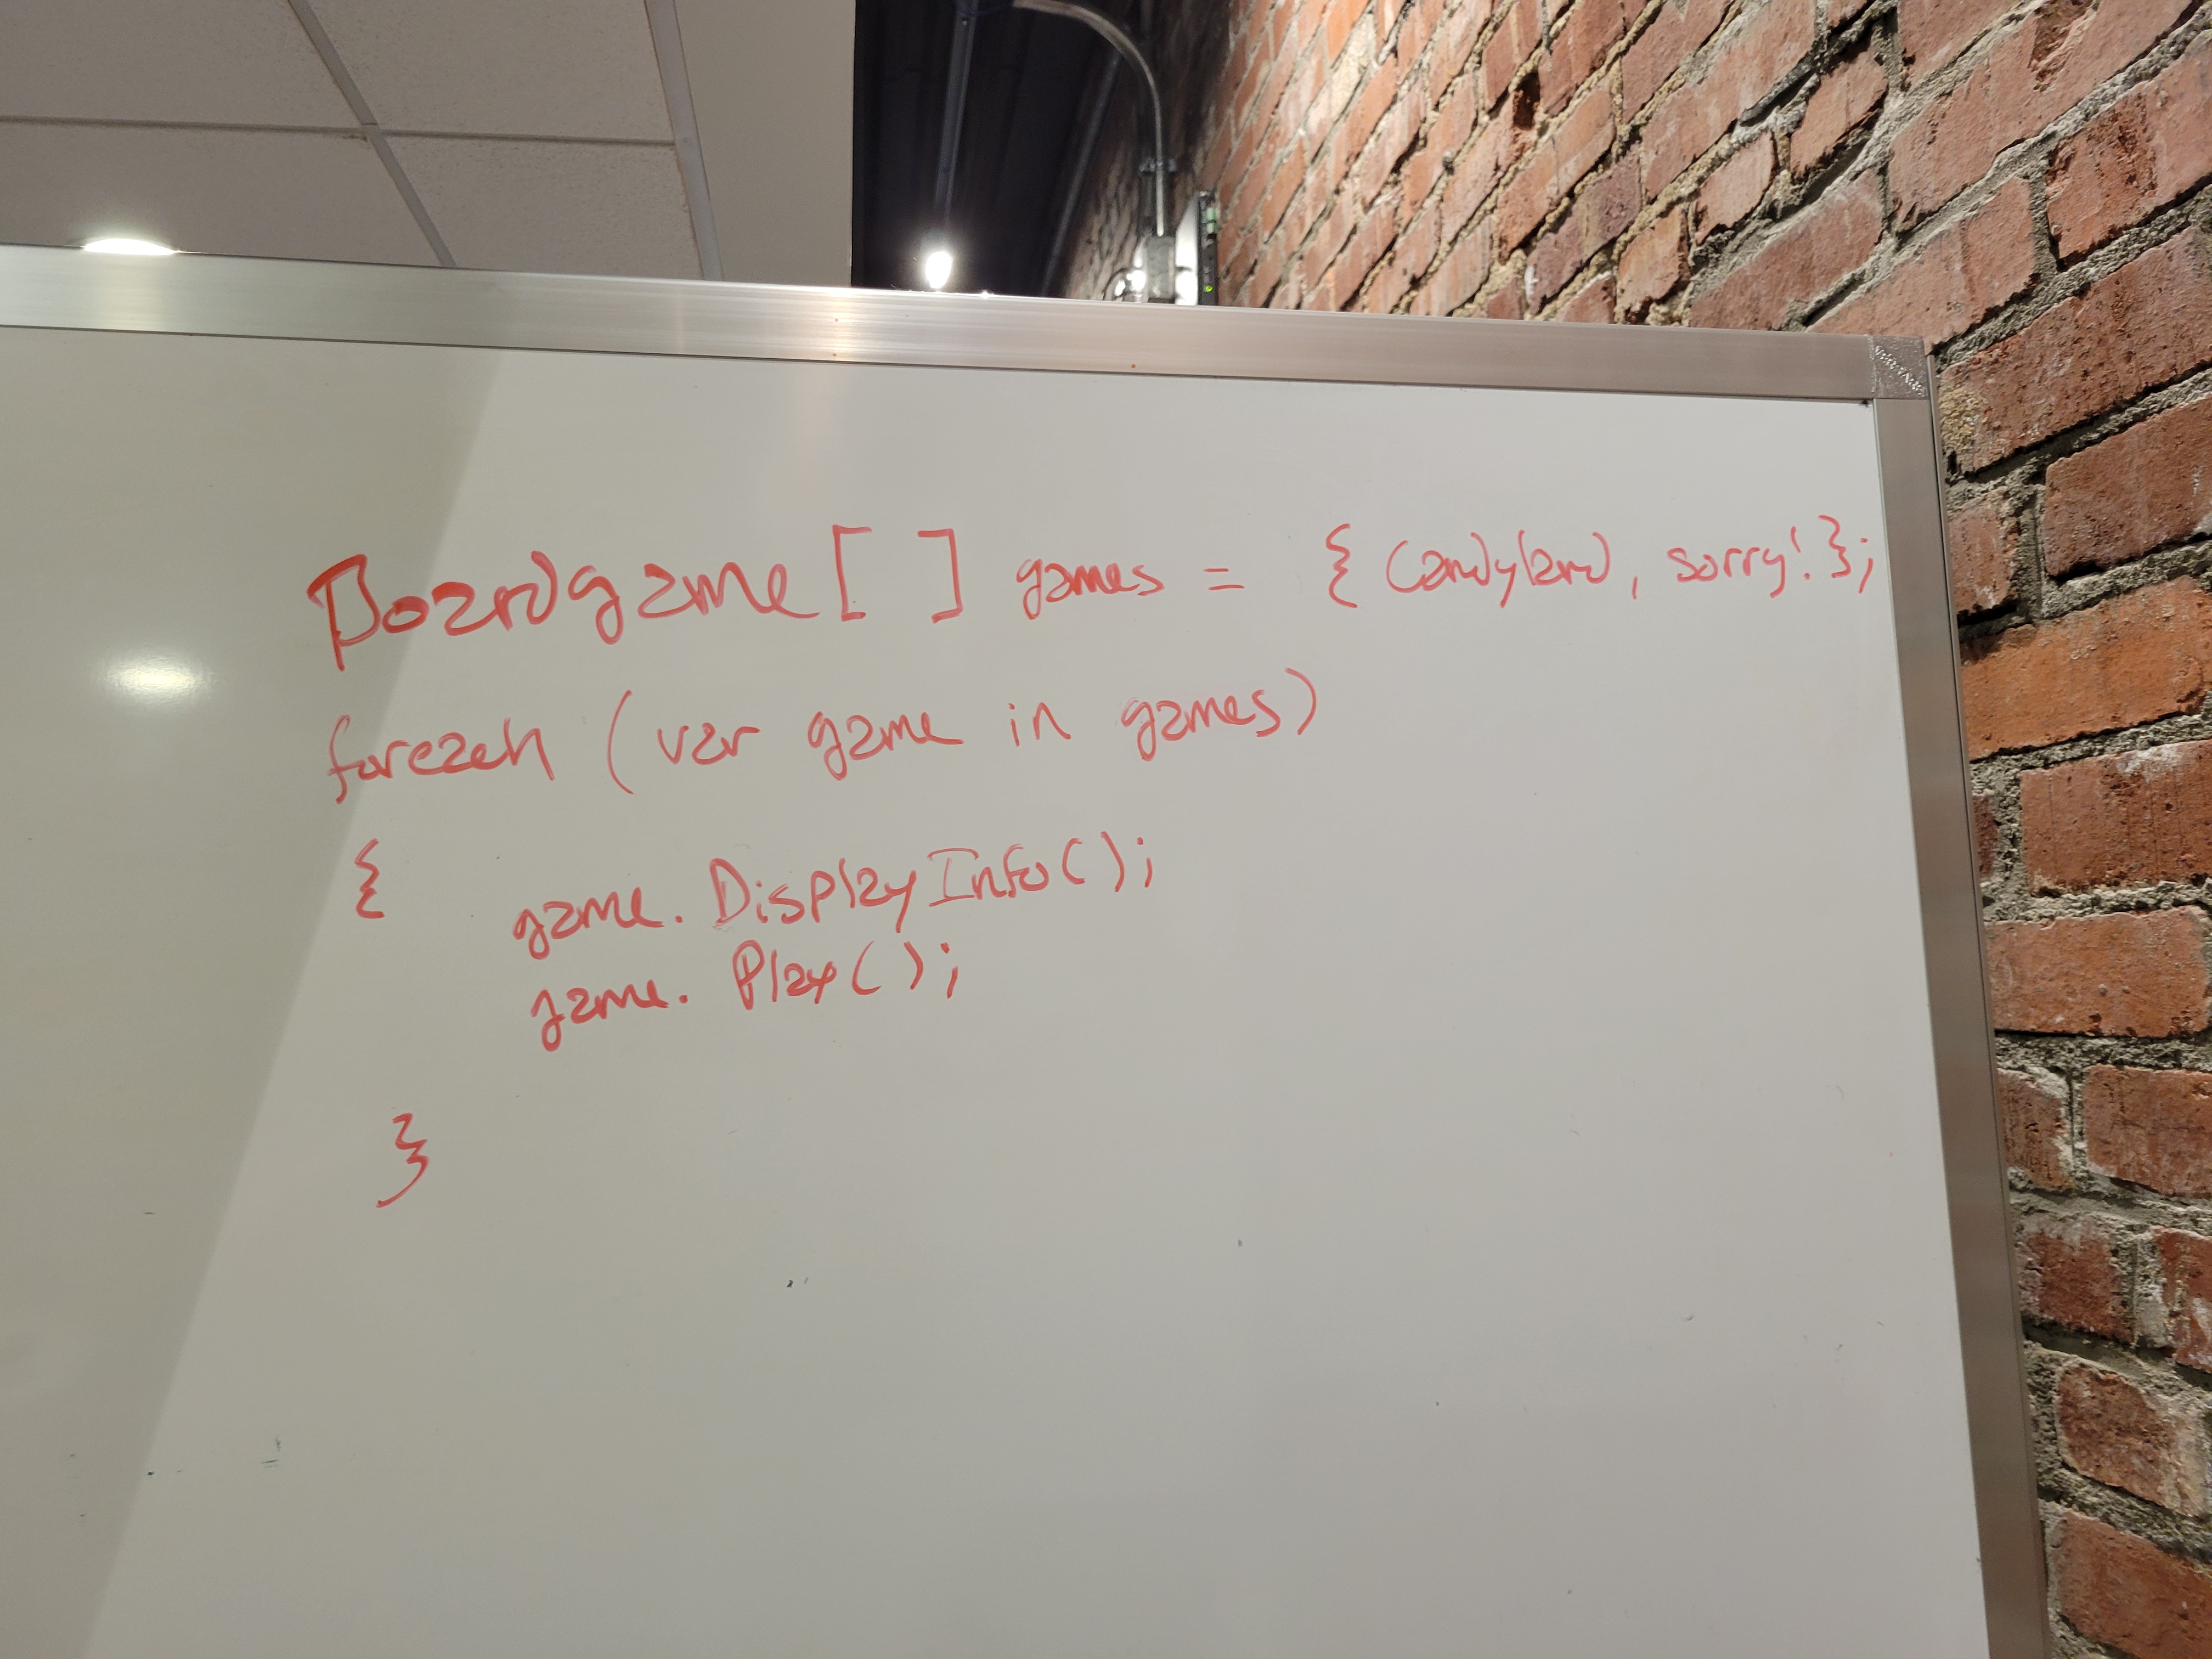 Boardgame[ ] games = { Candyland, sorry! };
foreach (var game in games)
{
game. DisplayInfo();
game. Play();
}